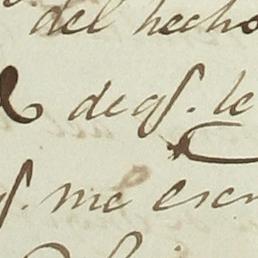 del hecho
de qͤ. le
qͤ. me escr